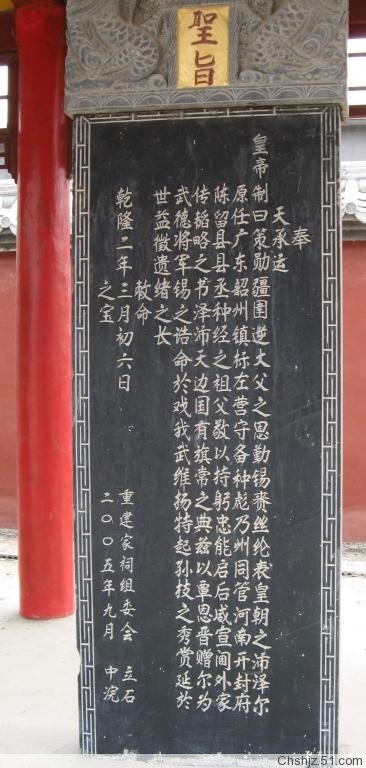 聖旨
奉
天承运
皇帝制曰策勋疆圉逆大父之恩勤锡赉丝纶表皇朝之沛泽尔
原任广东韶州镇标左营守备种彪乃州同管河南开封府
陈留县县丞种经之祖父敬以持躬忠能启后威宣阃外家
传韬略之书泽沛天边国有旗常之典兹以覃恩晋赠尔为
武德将军锡之诰命於戏我武维扬特起孙枝之秀赏延於
世益徵遗绪之长
敕命
乾隆二年三月初六日
之宝
重建家祠组委会 立石
二〇〇五年九月 中浣
Chshjz.51.com